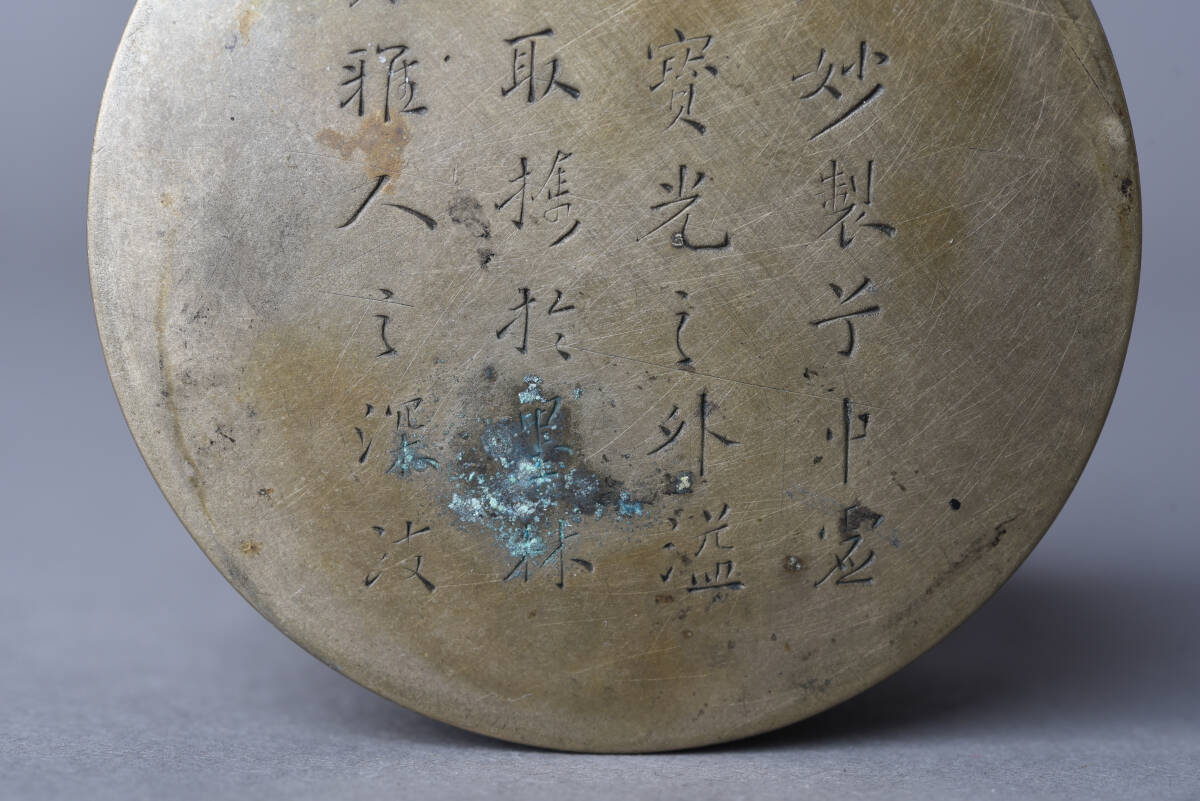 妙製兮中虛
寶光之外溢
取攜於墨林
雅人之深汲